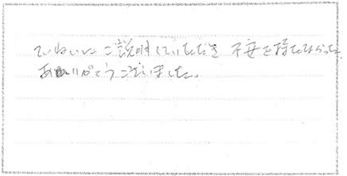 ていねいにご説明していただき 不安を持たなかった
ありがとうございました。